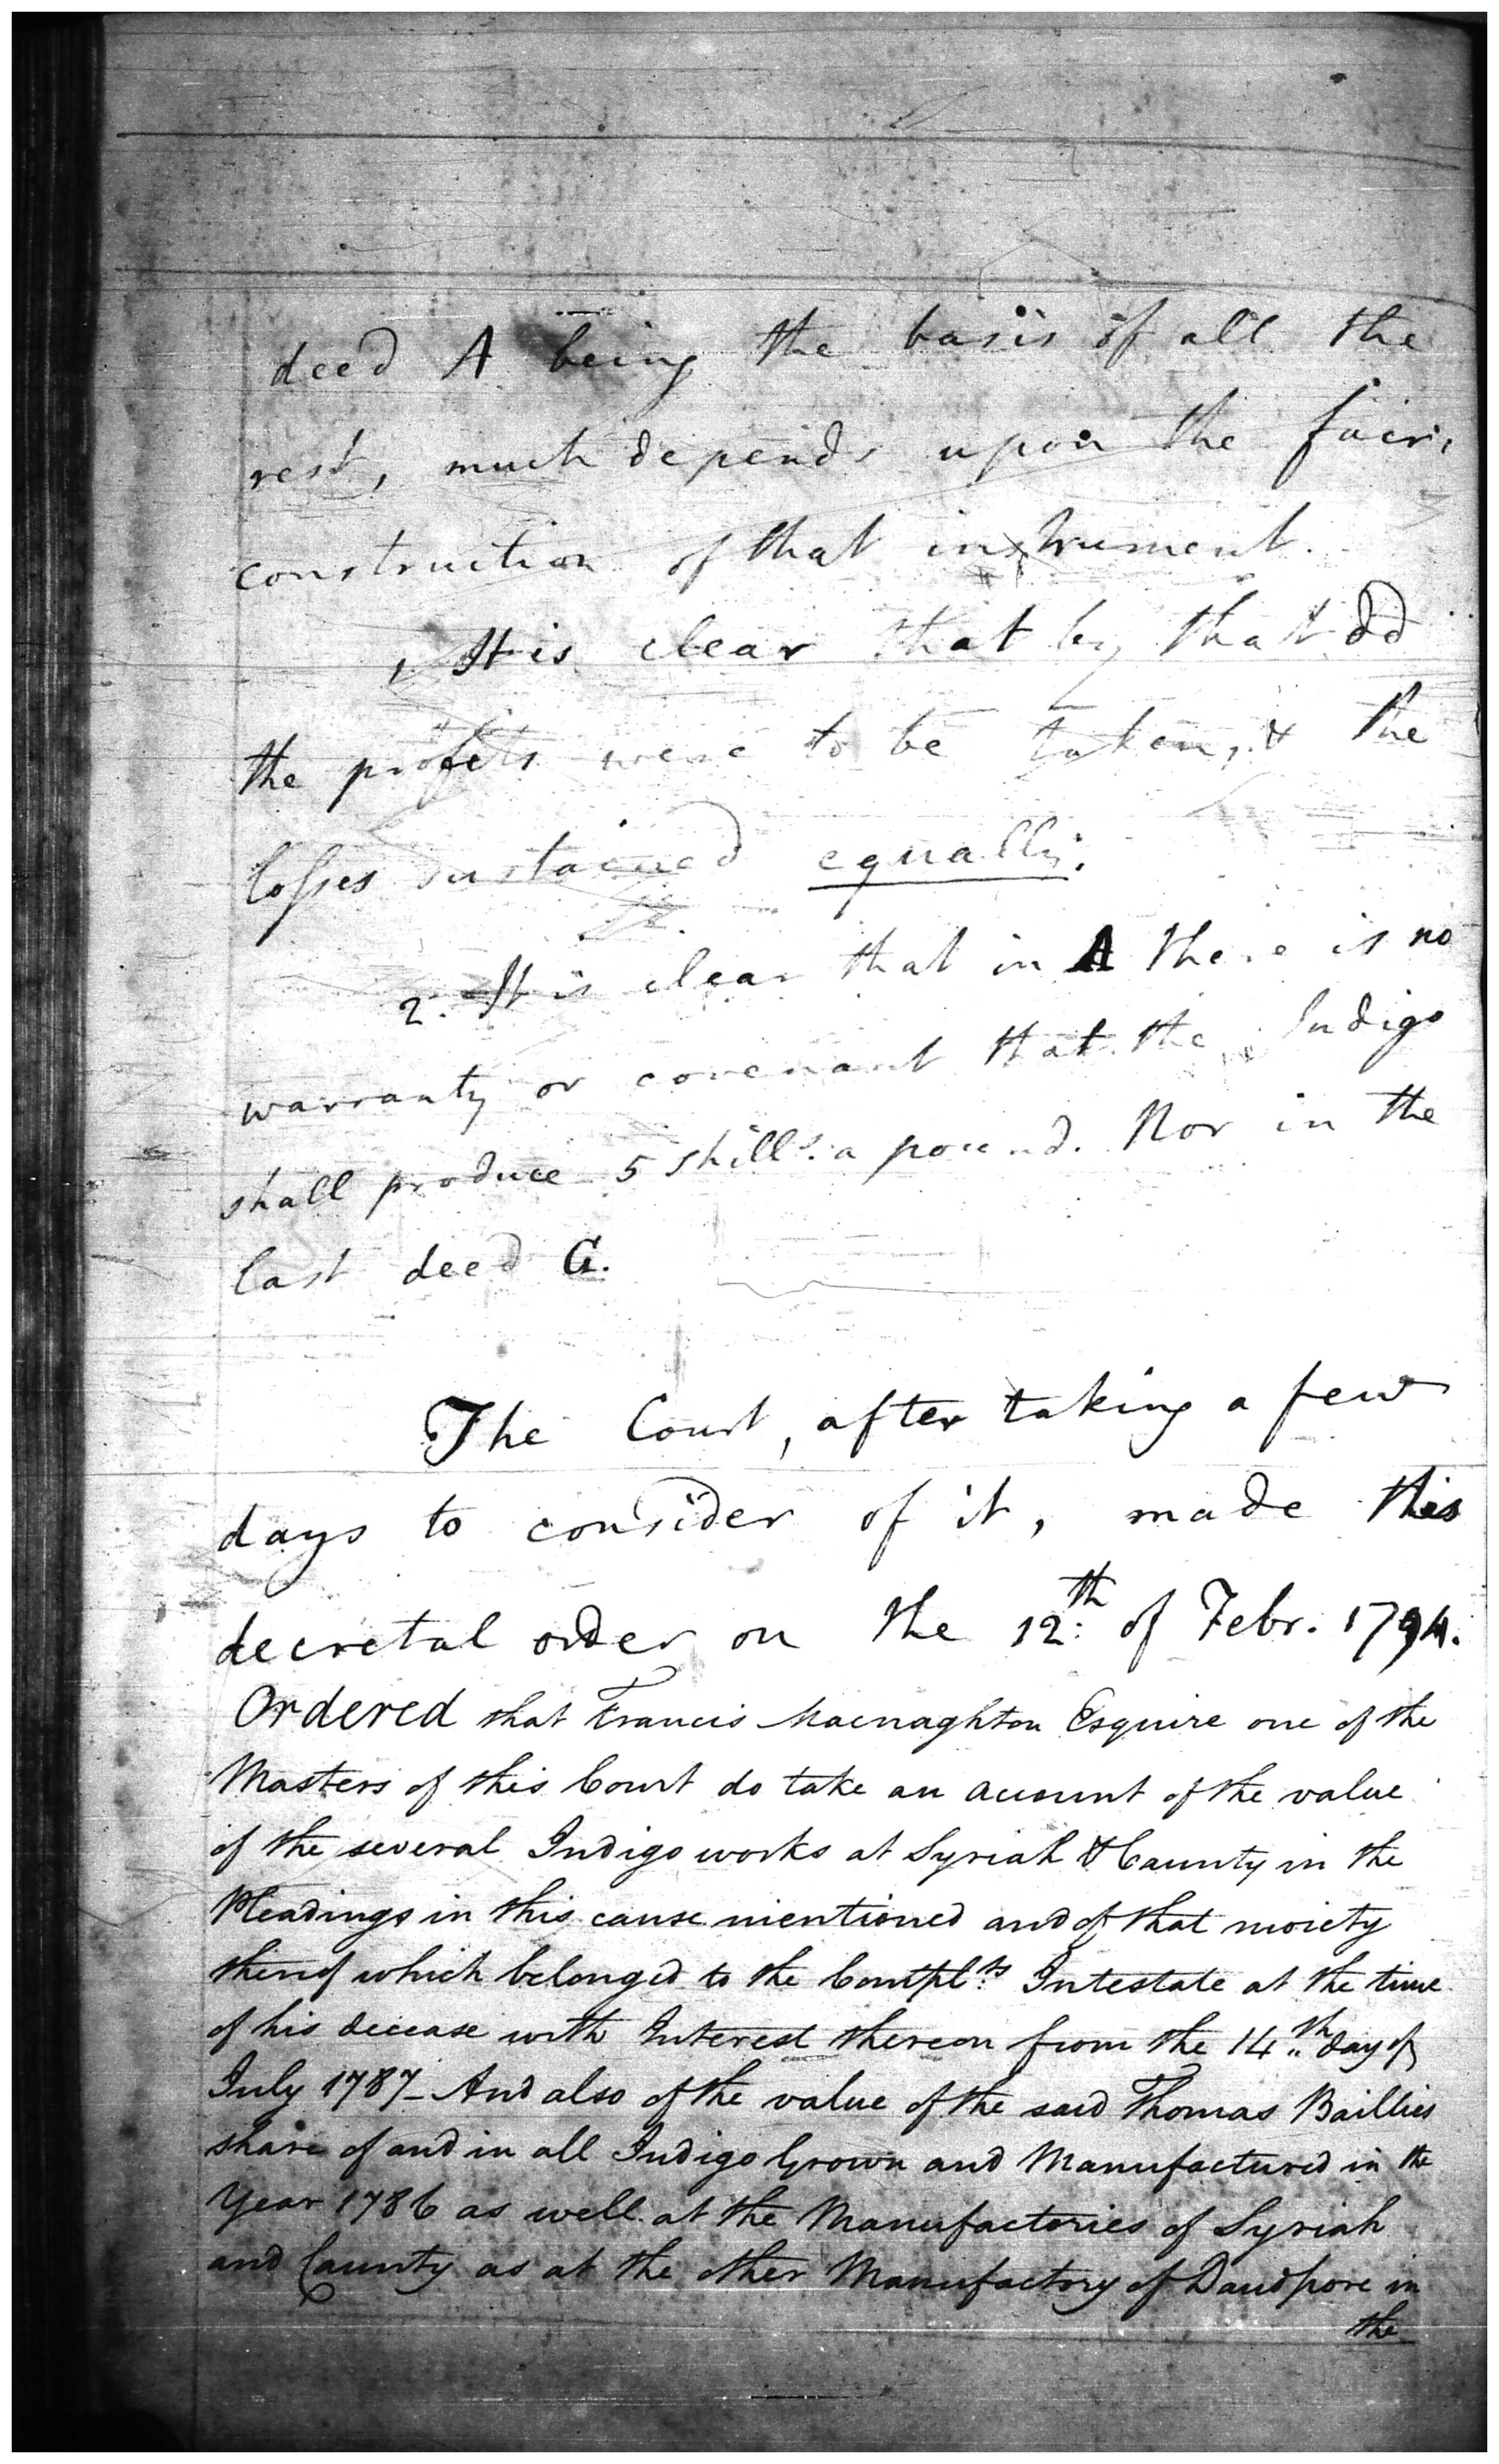 deed A being the basis of all the
rest, much depends upon the fair
construction of that instrument.
1. It is clear that by that dd
the profits were to be taken, & the
losses sustained equally.
2. It is clear that in A there is no
warranty or covenant that the Indigo
shall produce 5 shills. a pound. Nor in the
last deed G.
The Court, after taking a few
days to consider of it, made this
decretal order on the 12th of Febr. 1794.
Ordered that Francis Macnaghton Esquire one of the
Masters of this Court do take an account of the value
of the several Indigo works at Syriah & Caunty in the
Pleadings in this cause mentioned and of that moiety
thereof which belonged to the Complts Intestate at the time
of his decease with Interest thereon from the 14th day of
July 1787 - And also of the value of the said Thomas Baillies
share of and in all Indigo Grown and Manufactured in the
Year 1786 as well at the Manufactories of Syriah
and Caunty as at the other Manufactory of Daudpore in
the